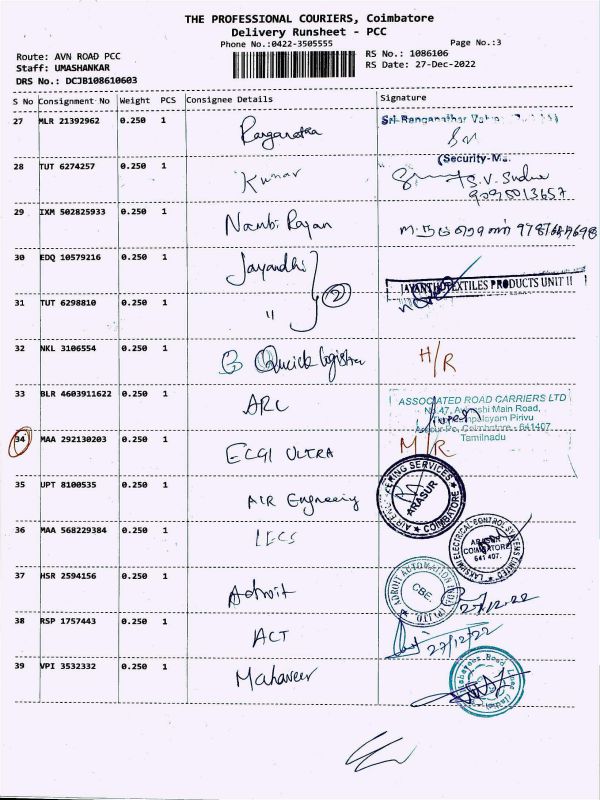 THE PROFESSIONAL COURIERS, Coimbatore
Delivery Runsheet - PCC
Phone No.:0422-3505555
Page No.:3
Route: AVN ROAD PCC
RS No.: 1086106
Staff: UMASHANKAR
RS Date: 27-Dec-2022
DRS No.: DCJB108610603
S No Consignment No Weight PCS Consignee Details Signature
27 MLR 21392962 0.250 1 Ranganatha Sri Ranganathar
(Security-Ma.
28 TUT 6274257 0.250 1 Kumar S.V. Sudha
9095013657
29 IXM 502825933 0.250 1 Nambi Rajan 9787647698
30 EDQ 10579216 0.250 1 Jayandhi
JAYANTHI TEXTILES PRODUCTS UNIT II
31 TUT 6298810 0.250 1 " 2
32 NKL 3106554 0.250 1 Quick logistra H/R
33 BLR 4603911622 0.250 1 ARC
ASSOCIATED ROAD CARRIERS LTD
No.47, Avinashi Main Road,
Pirivu
Arasur Po, Coimbatore - 641407
Tamilnadu
34 MAA 292130203 0.250 1 ECGI ULTRA M/R
35 UPT 8100535 0.250 1 AIR Engineering
AIR ENGINEERING SERVICES
ARASUR
COIMBATORE
36 MAA 568229384 0.250 1 LECS
LAKSHMI ELECTRICAL CONTROL SYSTEMS LIMITED
ARASUR
COIMBATORE
641 407.
37 HSR 2594156 0.250 1 Adroit
ADROIT AUTOMATION INDIA (P) LTD
CBE.
27/12/22
38 RSP 1757443 0.250 1 ACT 27/12/22
39 VPI 3532332 0.250 1 Mahaveer